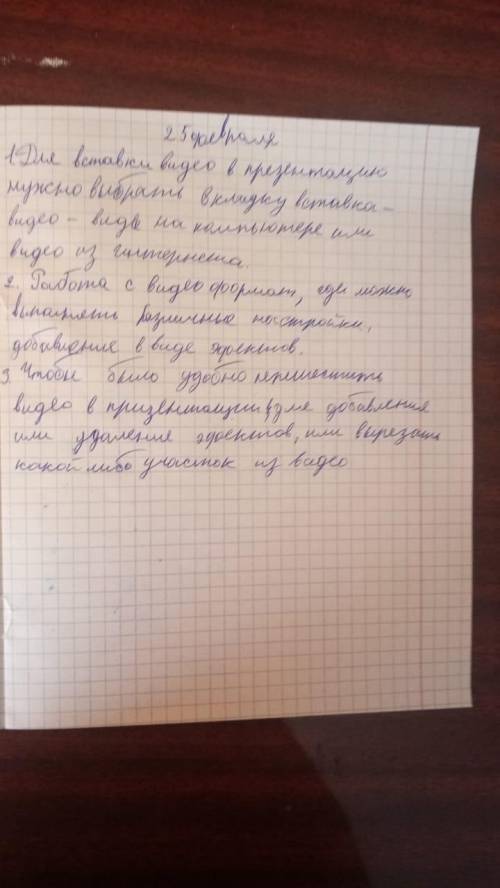 25 февраля
1. Для вставки видео в презентацию
нужно выбрать вкладку вставка-
видео - видео на компьютере или
видео из интернета.
2. Работа с видео формат, где можно
выполнять различные настройки,
добавление в виде эфектов.
3. Чтобы было удобно переместить
видео в призентации, для добавления
или удаления эфектов, или вырезать
какой либо участок из видео